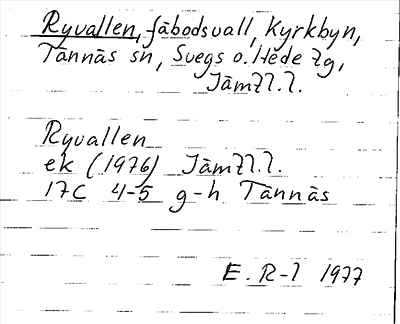 Ryvallen, fäbodsvall, Kyrkbyn,
Tännäs sn, Svegs o. Hede tg,
Jämtl. l.
Ryvallen
ek (1976) Jämtl. l.
17C 4-5 g-h Tännäs
E. R-l 1977